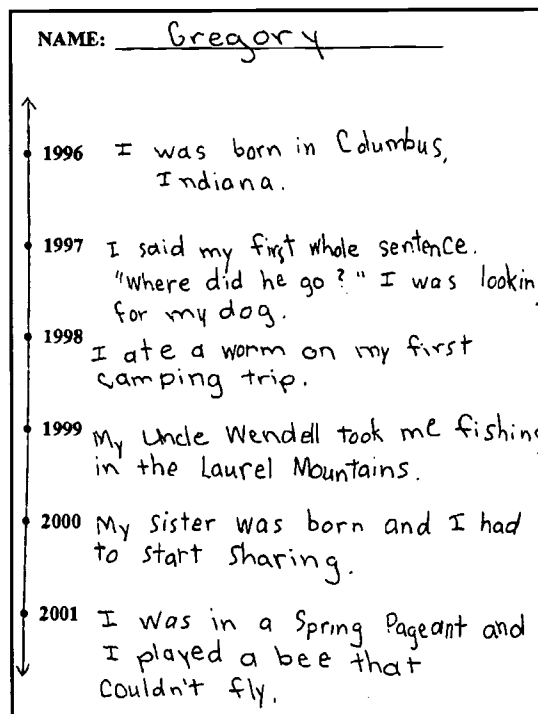 NAME: Gregory
1996 I was born in Columbus,
Indiana.
1997 I said my first whole sentence.
"Where did he go?" I was lookin
for my dog.
1998
I ate a worm on my first
camping trip.
1999 My Uncle Wendell took me fishing
in the Laurel Mountains.
2000 My sister was born and I had
to start sharing.
2001 I was in a Spring Pageant and
I played a bee that
couldn't fly.